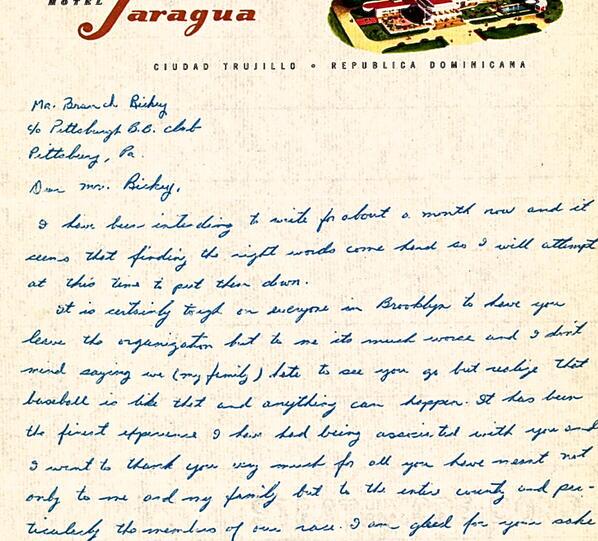 HOTEL Jaragua
CIUDAD TRUJILLO • REPUBLICA DOMINICANA
Mr. Branch Rickey
c/o Pittsburgh B.B. club
Pittsburg, Pa.
Dear Mr. Rickey,
I have been intending to write for about a month now and it
seems that finding the right words come hard so I will attempt
at this time to put them down.
It is certainly tough on everyone in Brooklyn to have you
leave the organization but to me its much worse and I don't
mind saying we (my family) hate to see you go but realize that
baseball is like that and anything can happen. It has been
the finest experience I have had being associated with you and
I want to thank you very much for all you have meant not
only to me and my family but to the entire country and par-
ticularly the members of our race. I am glad for your sake